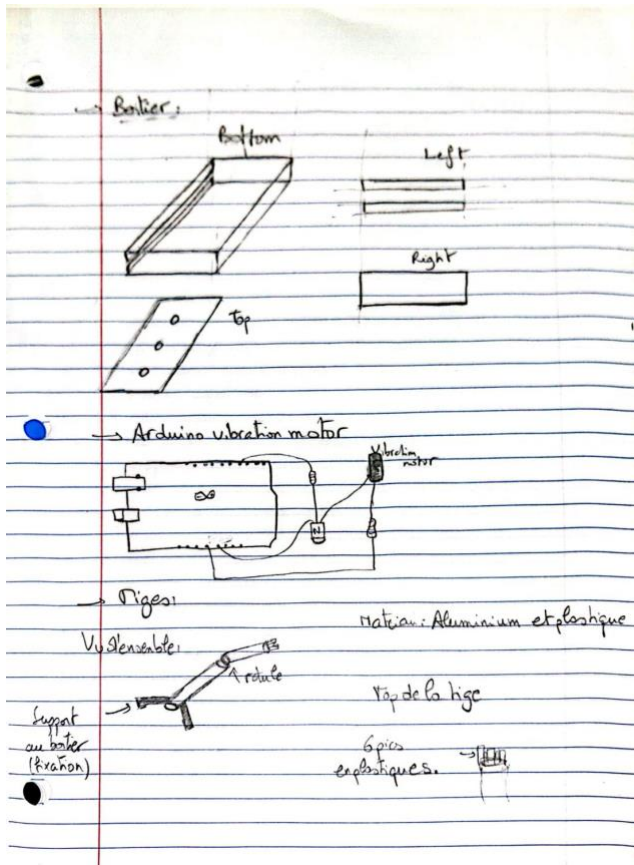 → Boîtier:
Bottom
Left
Right
Top
→ Arduino vibration motor
Vibration
motor
N
→ Tiges:
Matériau: Aluminium et plastique
Vu d'ensemble:
rotule
Top de la tige
Support
au boîtier
(fixation)
6 pics
en plastiques.